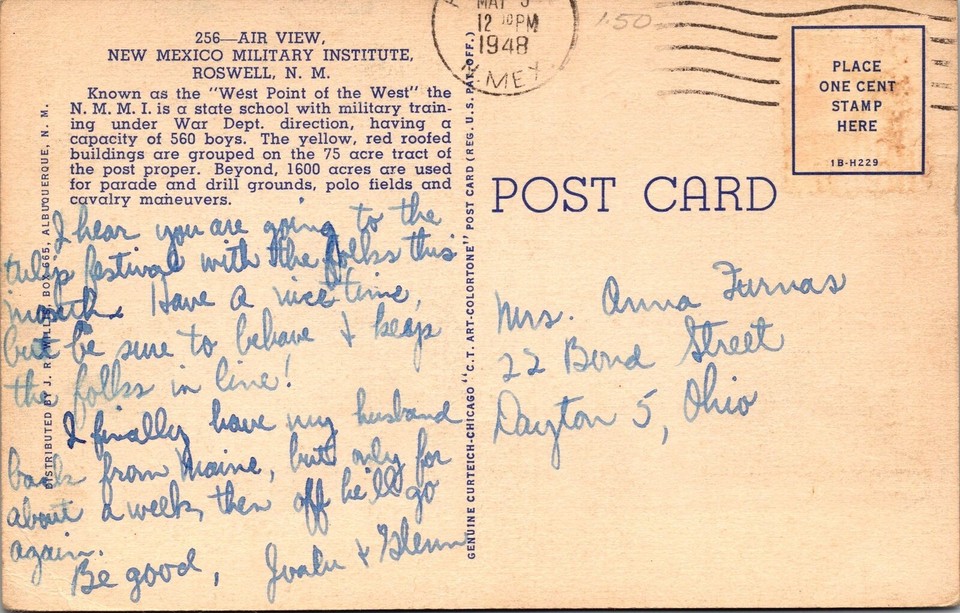 256—AIR VIEW,
NEW MEXICO MILITARY INSTITUTE,
ROSWELL, N. M.
Known as the "West Point of the West" the
N. M. M. I. is a state school with military train-
ing under War Dept. direction, having a
capacity of 560 boys. The yellow, red roofed
buildings are grouped on the 75 acre tract of
the post proper. Beyond, 1600 acres are used
for parade and drill grounds, polo fields and
cavalry maneuvers.
I hear you are going to the
tulip festival with the folks this
month. Have a nice time,
but be sure to behave & keep
the folks in line!
I finally have my husband
back from Maine, but only for
about a week, then off he'll go
again.
Be good,
& Glenn
DISTRIBUTED BY J. R. WILLIS, BOX 665, ALBUQUERQUE, N. M.
GENUINE CURTEICH-CHICAGO "C.T. ART-COLORTONE" POST CARD (REG. U.S. PAT. OFF.)
MAY 5
12 PM
1948
N. MEX.
1.50
PLACE
ONE CENT
STAMP
HERE
1B-H229
POST CARD
Mrs. Anna Furnas
22 Bond Street
Dayton 5, Ohio